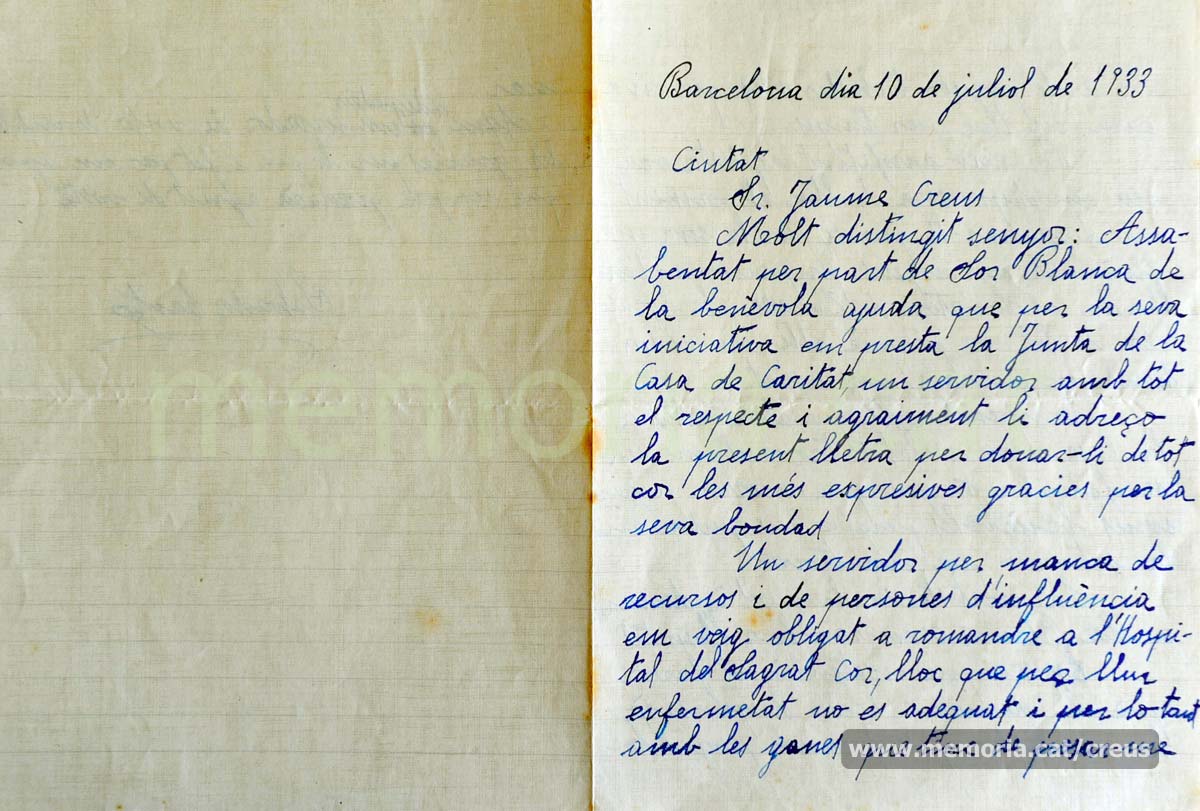 Barcelona dia 10 de juliol de 1933
Ciutat
Sr. Jaume Creus
Molt distingit senyor: Assa-
bentat per part de Sor Blanca de
la benèvola ajuda que per la seva
iniciativa em presta la Junta de la
Casa de Caritat, un servidor amb tot
el respecte i agraiment li adreço
la present lletra per donar-li de tot
cor les més expresives gracies per la
seva bondad
Un servidor per manca de
recursos i de persones d'influència
em veig obligat a romandre a l'Hospi-
tal del Sagrat Cor, lloc que per llur
enfermetat no es adequat i per lo tant
amb les ganes que tinc de
www.memoria.cat/creus